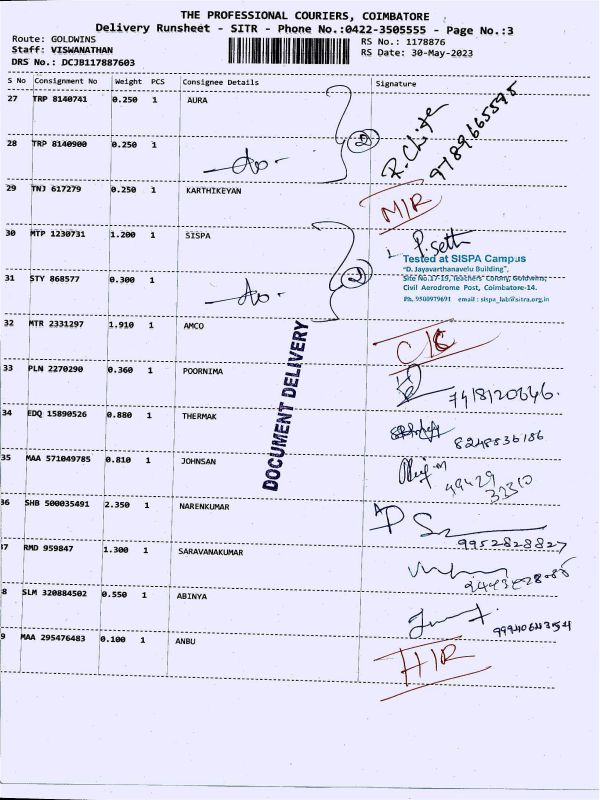 THE PROFESSIONAL COURIERS, COIMBATORE
Delivery Runsheet - SITR - Phone No.:0422-3505555 - Page No.:3
Route: GOLDWINS
RS No.: 1178876
Staff: VISWANATHAN
RS Date: 30-May-2023
DRS No.: DCJB117887603
S No Consignment No Weight PCS Consignee Details Signature
27 TRP 8140741 0.250 1 AURA
28 TRP 8140900 0.250 1 -do-
2
9789665595
29 TNJ 617279 0.250 1 KARTHIKEYAN M/R
30 MTP 1230731 1.200 1 SISPA
Tested at SISPA Campus
"D. Jayavarthanavelu Building",
Site No.17-19, Teachers' Colony, Goldwins,
Civil Aerodrome Post, Coimbatore-14.
Ph. 9500979691 email : sispa_lab@sitra.org.in
31 STY 868577 0.300 1 -do-
2
32 MTR 2331297 1.910 1 AMCO
33 PLN 2270290 0.360 1 POORNIMA 7418120646.
34 EDQ 15890526 0.880 1 THERMAK 8248836186
35 MAA 571049785 0.810 1 JOHNSAN 99429
33310
DOCUMENT DELIVERY
36 SHB 500035491 2.350 1 NARENKUMAR
9952828827
37 RMD 959847 1.300 1 SARAVANAKUMAR
8 SLM 320884502 0.550 1 ABINYA
9 MAA 295476483 0.100 1 ANBU H/R